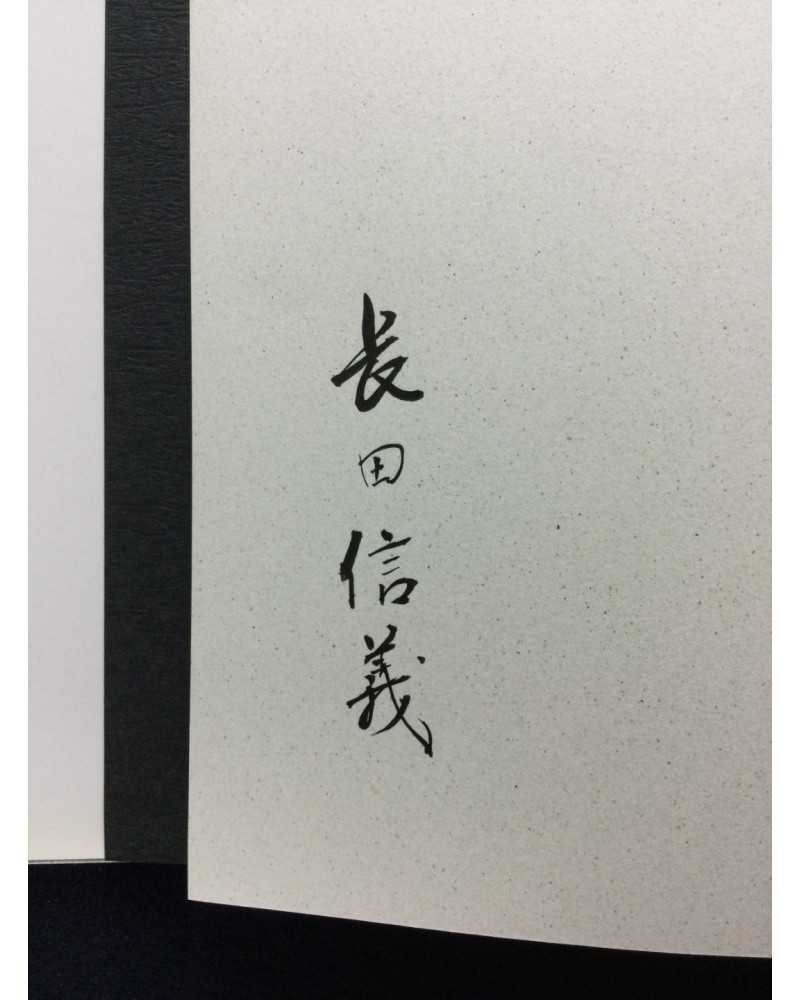 長田信義